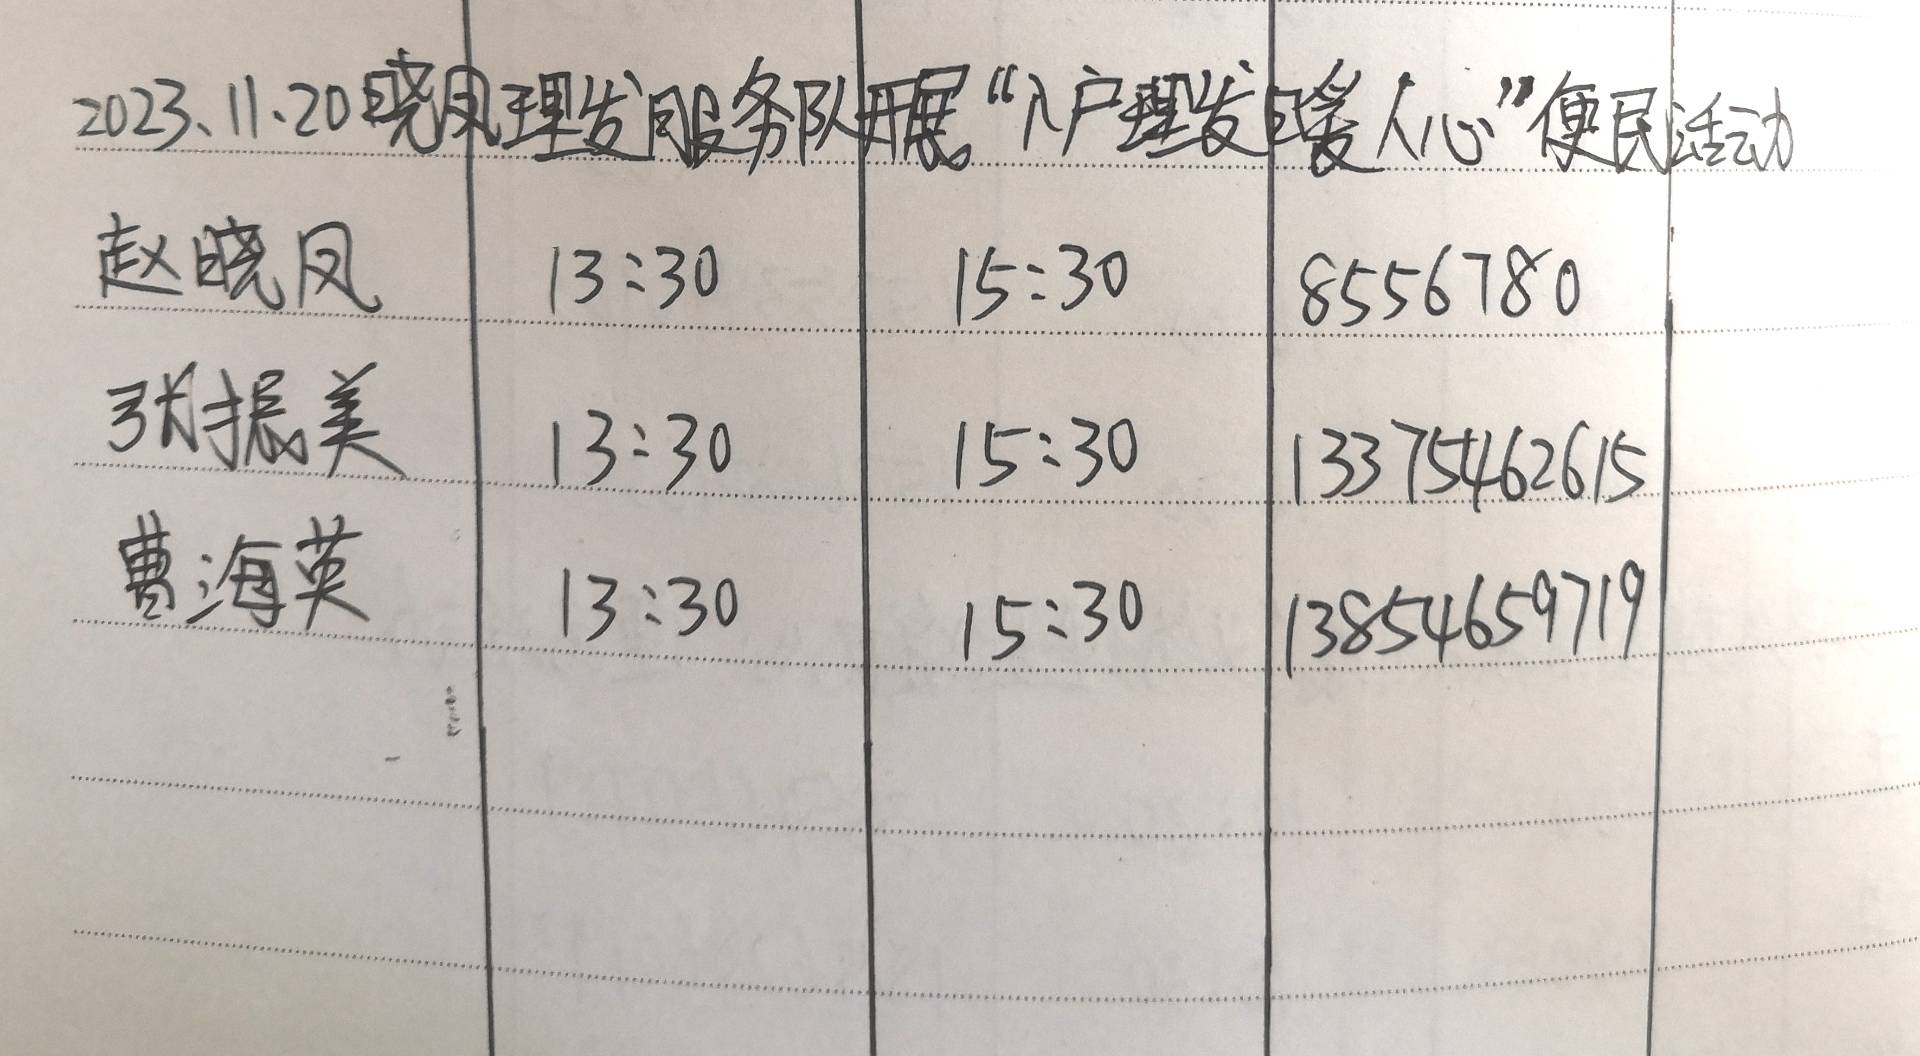 2023.11.20晓凤理发服务队开展“入户理发暖人心”便民活动
赵晓凤 13:30 15:30 8556780
张振美 13:30 15:30 13375462615
曹海英 13:30 15:30 13854659719